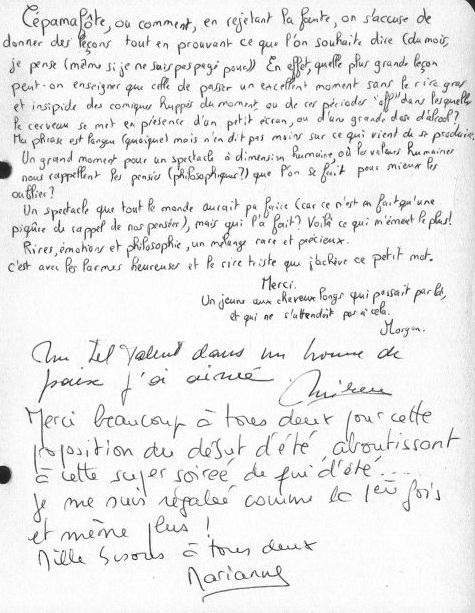 Cépamafôte, ou comment, en rejetant la faute, on s'accuse de
donner des leçons tout en prouvant ce que l'on souhaite dire (du moins,
je pense (même si je ne suis pas payé pour)) En effet, quelle plus grande leçon
peut-on enseigner que celle de passer un excellent moment sans le rire gras
et insipide des comiques huppés du moment, ou de ces périodes "off" dans lesquelles
le cerveau se met en présence d'un petit écran, ou d'une grande dose d'alcool?
Ma phrase est longue (quoique) mais n'en dit pas moins sur ce qui vient de se produire.
Un grand moment pour un spectacle à dimension humaine, où les valeurs humaines
nous rappellent les pensées (philosophiques?) que l'on se fait pour mieux les
oublier?
Un spectacle que tout le monde aurait pu faire (car ce n'est en fait qu'une
piqûre de rappel de nos pensées), mais qui l'a fait? Voilà ce qui m'émeut le plus!
Rires, émotions et philosophie, un mélange rare et précieux.
C'est avec les larmes heureuses et le rire triste que j'achève ce petit mot.
Merci.
Un jeune aux cheveux longs qui passait par là,
et qui ne s'attendait pas à cela.
Morgan.
Un tel talent dans un homme de
paix j'ai aimé
Merci beaucoup à tous deux pour cette
proposition du début d'été, aboutissant
à cette super soirée de fin d'été....
Je me suis régalée comme la 1ère fois
et même plus !
Mille bisous à tous deux
Marianne